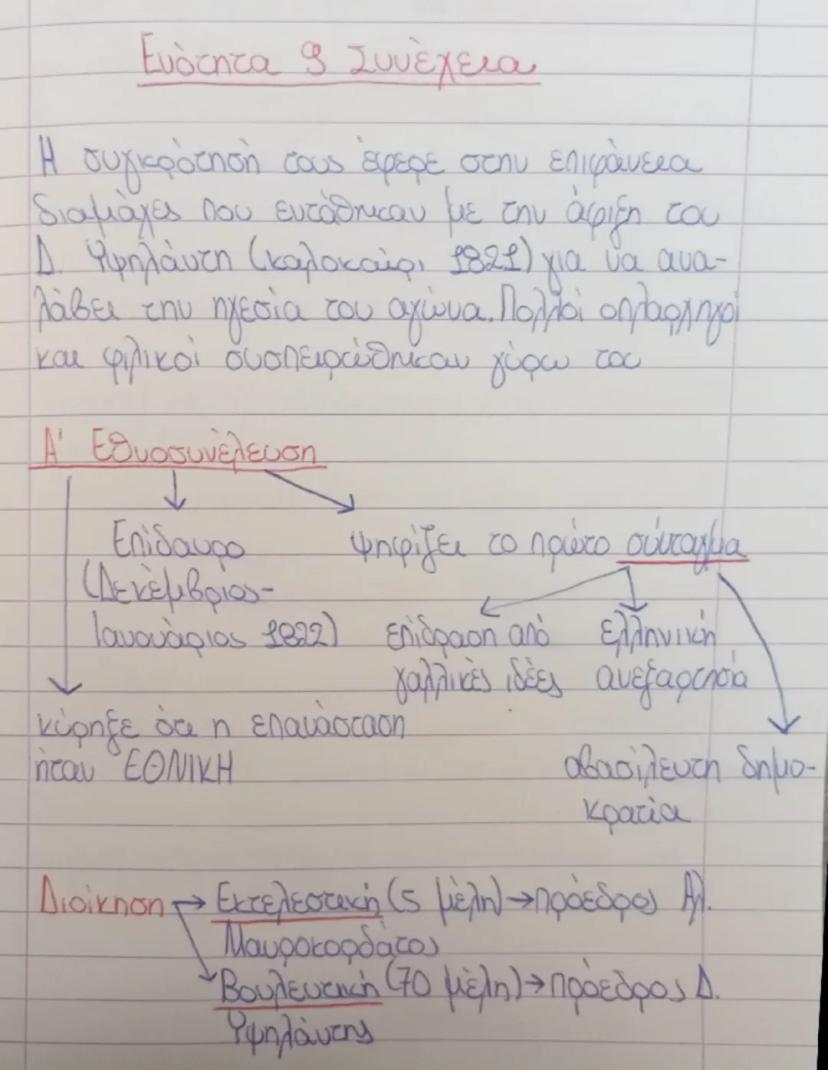 Ενότητα 9 Συνέχεια
Η συγκρότησή τους έφερε στην επιφάνεια
διαμάχες που εντάθηκαν με την άφιξη του
Δ. Υψηλάντη (καλοκαίρι 1821) για να ανα-
λάβει την ηγεσία του αγώνα. Πολλοί οπλαρχηγοί
και φιλικοί συσπειρώθηκαν γύρω του
Α' Εθνοσυνέλευση
Επίδαυρο ψηφίζει το πρώτο σύνταγμα
(Δεκέμβριος-
Ιανουάριος 1822) επίδραση από ελληνική
γαλλικές ιδέες ανεξαρτησία
κύρηξε ότι η επανάσταση
ήταν ΕΘΝΙΚΗ αβασίλευτη δημο-
κρατία
Διοίκηση → Εκτελεστική (5 μέλη) → πρόεδρος Αλ.
Μαυροκορδάτος
Βουλευτική (70 μέλη) → πρόεδρος Δ.
Υψηλάντης